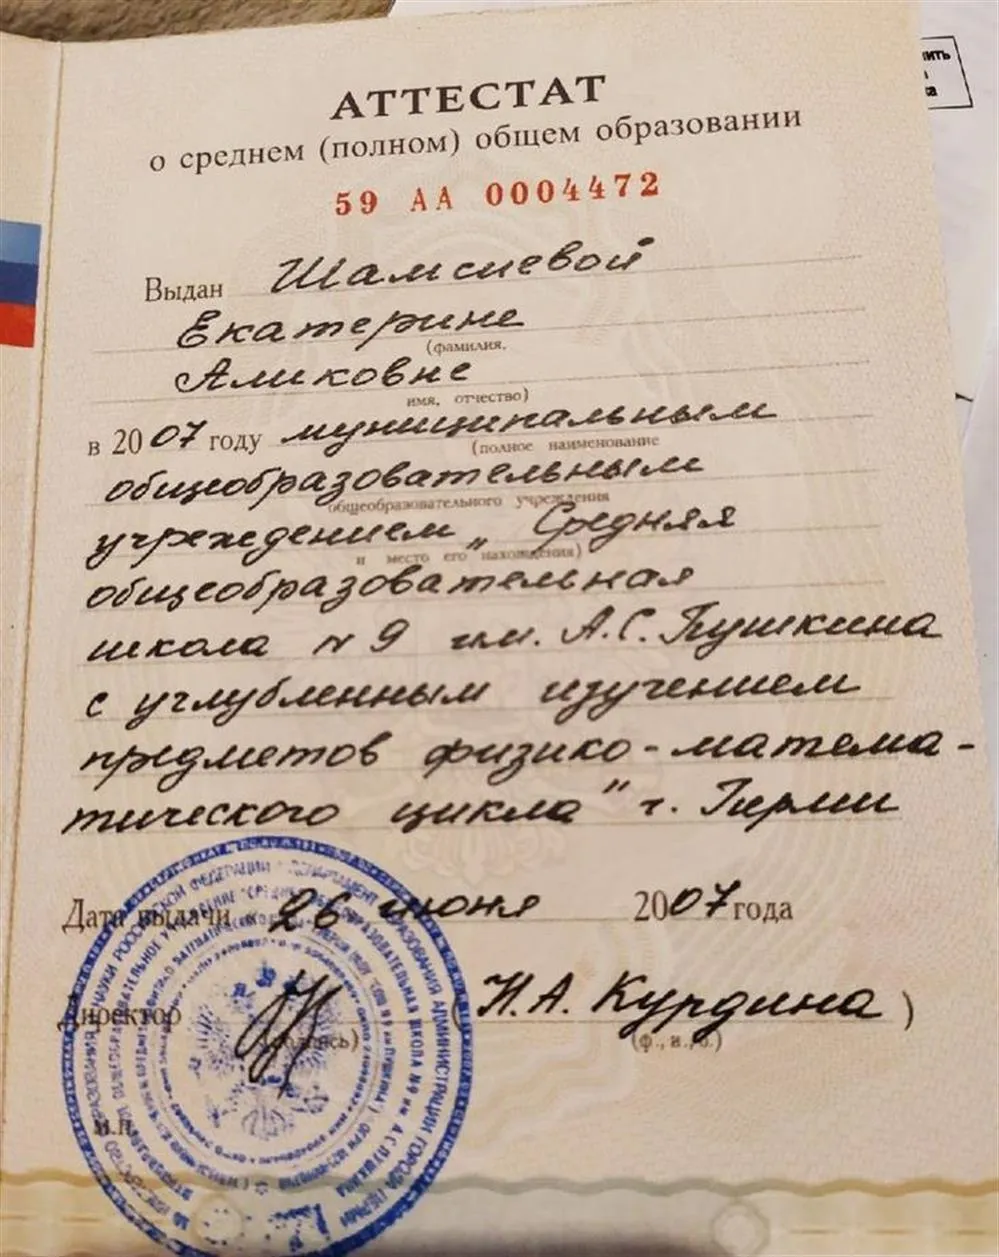 АТТЕСТАТ
о среднем (полном) общем образовании
59 АА 0004472
Выдан Шамсиевой
Екатерине
(фамилия,
Аликовне
имя, отчество)
в 2007 году муниципальным
(полное наименование
общеобразовательным
общеобразовательного учреждения
учреждением „Средняя
и место его нахождения)
общеобразовательная
школа N 9 им. А.С. Пушкина
с углубленным изучением
предметов физико-матема-
тического цикла" г. Перми
Дата выдачи 26 июня 2007 года
Директор (Н.А. Курдина)
(подпись) (ф., и., о.)
м.п.